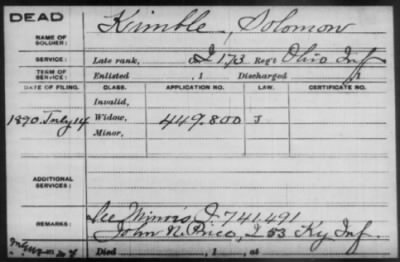 DEAD
NAME OF SOLDIER: Kimble, Solomon
SERVICE: Late rank, I 173 Regt Ohio Inf
TERM OF SERVICE: Enlisted , 1 Discharged , 1
DATE OF FILING. CLASS. APPLICATION NO. LAW. CERTIFICATE NO.
Invalid,
1890 July 14 Widow, 449.800 J
Minor,
ADDITIONAL SERVICES:
REMARKS: See Minors O. 741.491
John N. Price, I 53 Ky Inf.
Died , 1 , at